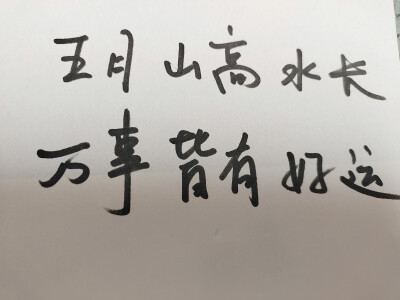 五月山高水长
万事皆有好运